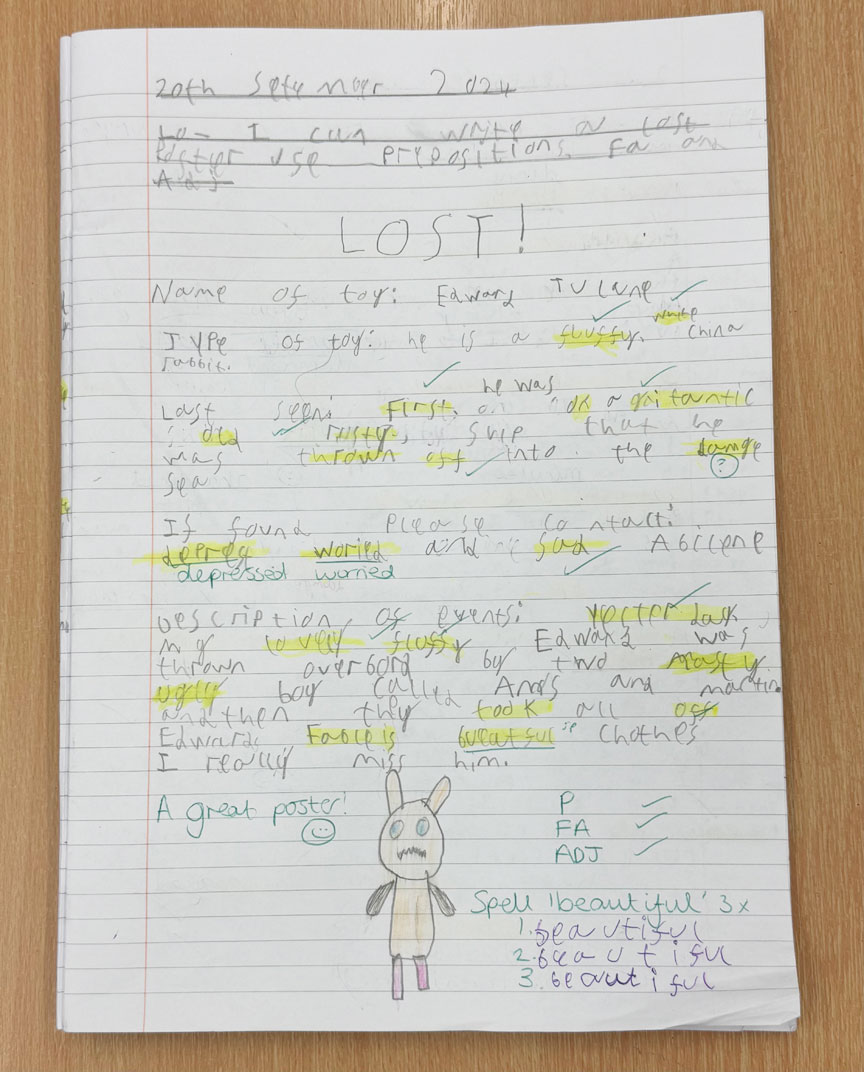 20th Setember 2024
Lo- I can write a Lost
Poster use prepositions, Fa and
Adj
LOST!
Name of toy: Edward Tulane
white
Type of toy: he is a fluffy, china
rabbit.
he was
Last seen: First, on a gritantic
old rusty, ship that he
was thrown off into the damge
?
sea
If found please contact:
depreg woried and sad Abilene
depressed worried
Description of events: Yesterday
my lovely flussy Edward was
thrown overbord by two nasty
ugly boy called Amos and martin
and then they took all off
Edwards Fableis bueatful Clothes
I really miss him.
A great poster!
P
FA
ADJ
Spell 'beautiful' 3x
1. beautiful
2. beautiful
3. beautiful